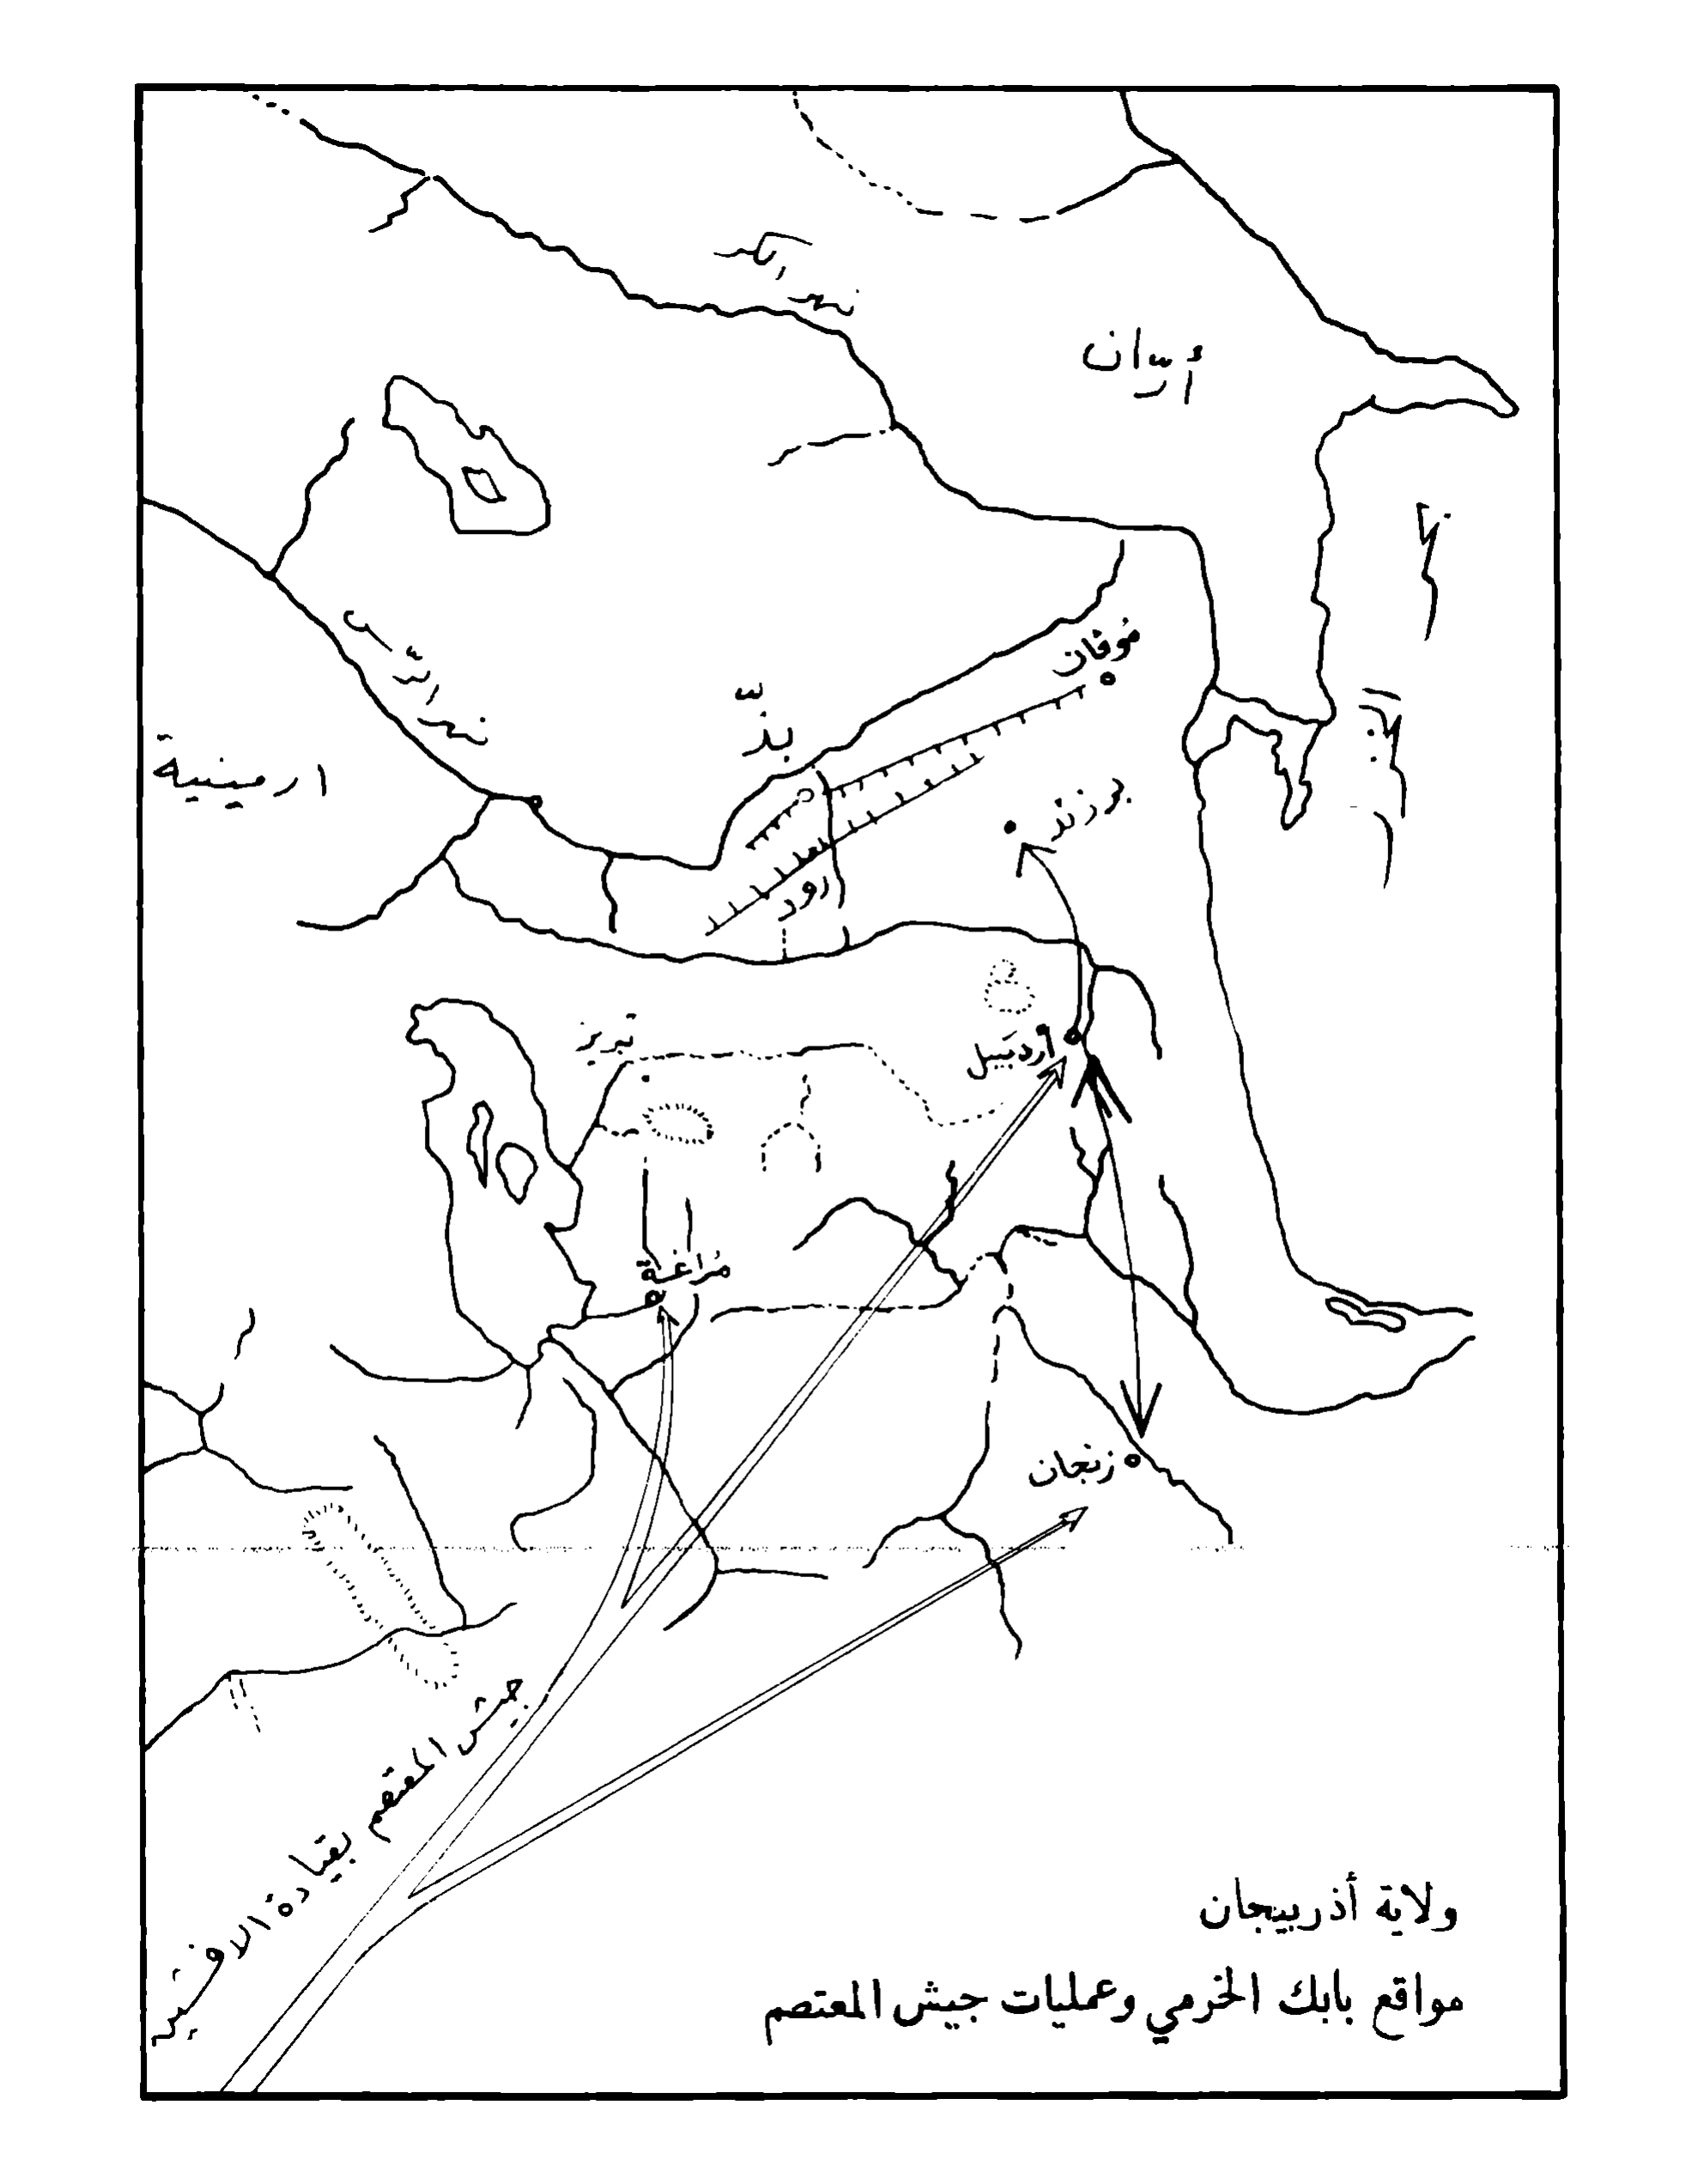 نهر الكر
أرّان
بحر
الخزر
نهر الرّس
ارمينية
مُوقان
بذّ
برزند
رود
أردبيل
تبريز
مُراغة
زنجان
جيش المعتصم بقيادة الافشين
ولاية أذربيجان
مواقع بابك الخرمي وعمليات جيش المعتصم